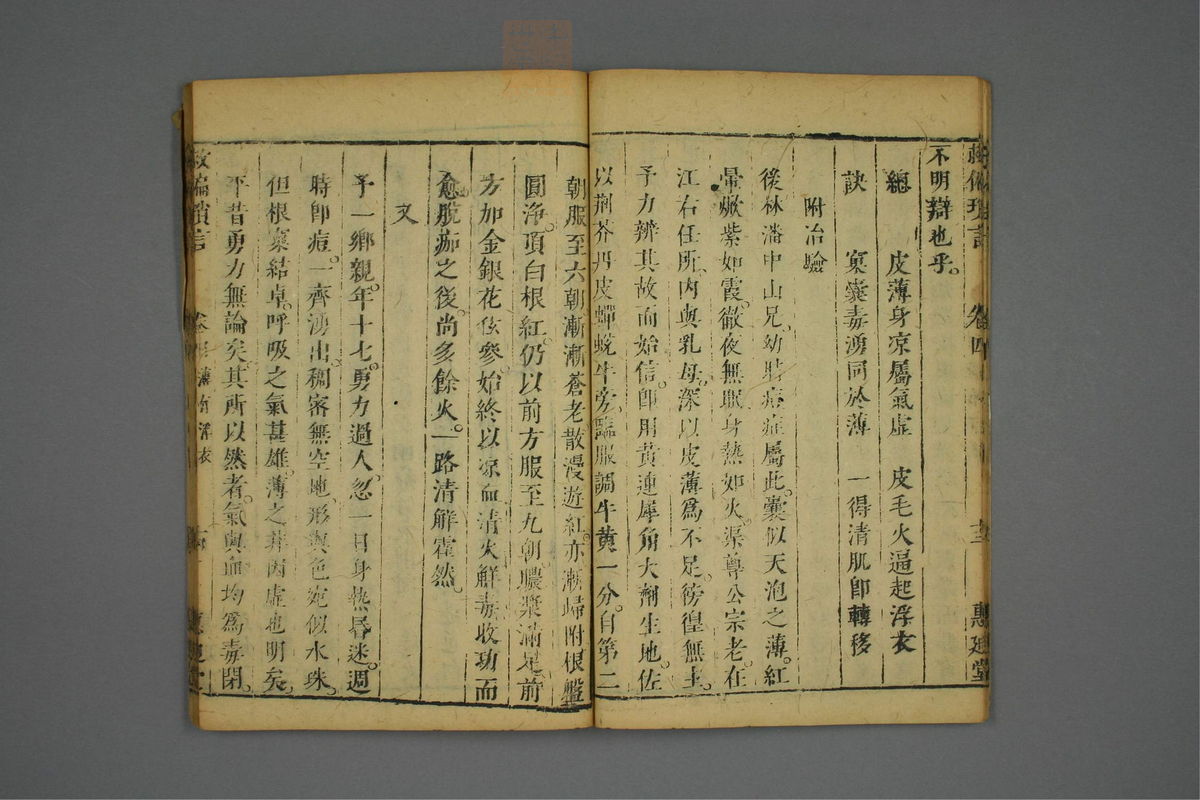 救偏瑣言 卷四 十三 惠迪堂
不明辯也乎。
總 皮薄身凉屬氣虛 皮毛火逼起浮衣
訣 窠囊毒湧同於薄 一得清肌卽轉移
附治驗
後林潘中山兄。幼時痘症屬此。囊似天泡之薄。紅
暈燉紫如霞。徹夜無眠。身熱如火。渠尊公宗老。在
江右任所。內與乳母。深以皮薄爲不足。徬徨無主。
予力辨其故而始信。卽用黃連犀角大劑生地。佐
以荊芥丹皮蟬蛻牛旁。臨服調牛黃一分。自第二
朝服至六朝漸漸蒼老散漫遊紅。亦漸歸附根盤
圓淨。頂白根紅。仍以前方服至九朝膿漿滿足。前
方加金銀花佐參。始終以凉血清火解毒收功。而
愈脫痂之後。尚多餘火。一路清解霍然。
又
予一鄉親。年十七。勇力過人。忽一日身熱昏迷。週
時卽痘。一齊湧出。稠密無空地。形與色宛似水珠。
但根窠結卓。呼吸之氣甚雄。薄之非內虛也明矣。
平昔勇力無論矣。其所以然者。氣與血均爲毒閉。
救偏瑣言 卷四 薄有浮衣 惠迪堂